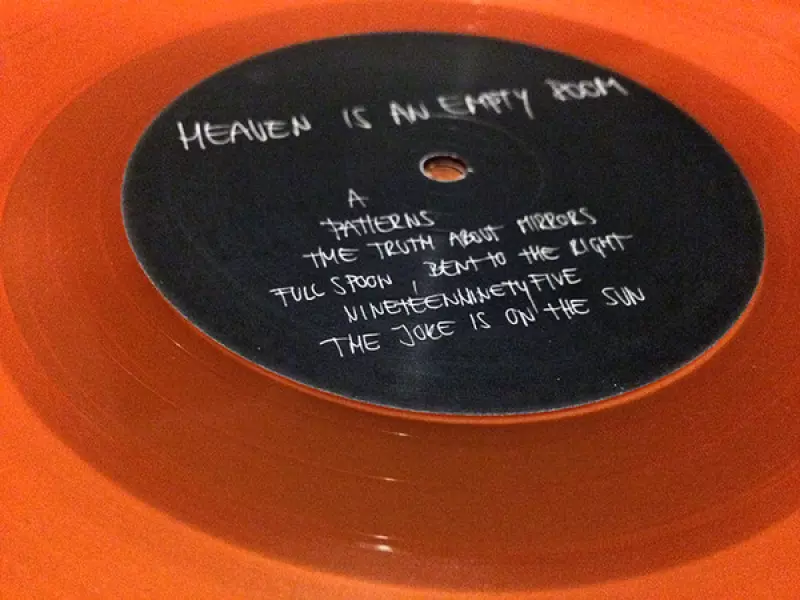 HEAVEN IS AN EMPTY ROOM
A
PATTERNS
THE TRUTH ABOUT MIRRORS
FULL SPOON, BENT TO THE RIGHT
NINETEENNINETYFIVE
THE JOKE IS ON THE SUN